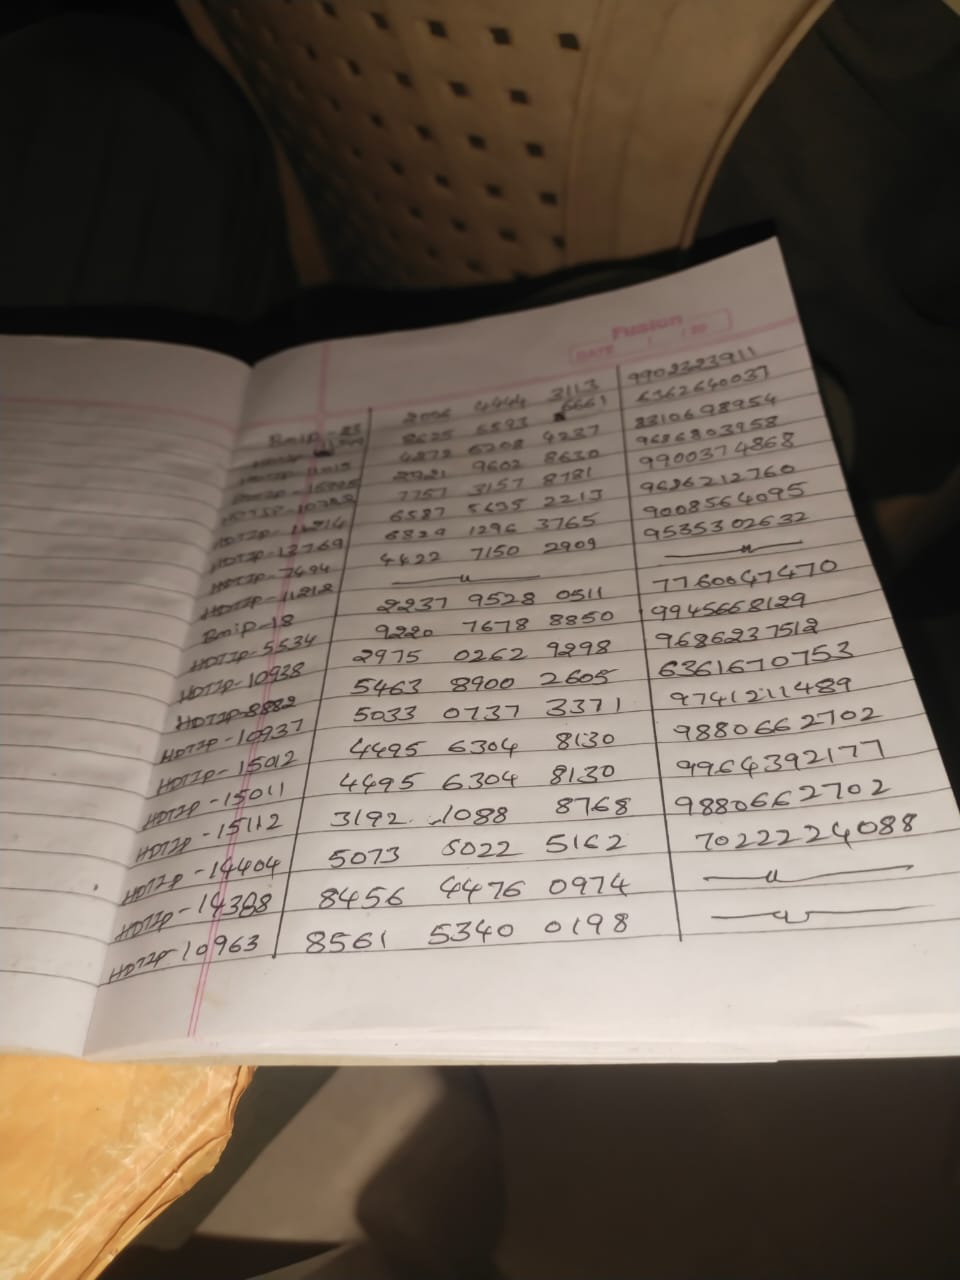 Fusion
DATE
Bmip-23 2006 4444 3113 9902323911
8625 5593 6661 6362640037
4872 6208 4237 8310698954
9602 8630 9686803958
HDTIP-10782 7757 3157 8781 9900374868
HDTIP-11214 6587 5635 2213 9686212760
HDTIP-13769 6829 1296 3765 9008564095
HDTIP-7494 4422 7150 2909 9535302632
HDTIP-11212 —〃— —〃—
Bmip-18 2237 9528 0511 7760047470
HDTIP-5534 9220 7678 8850 9945668129
HDTIP-10938 2975 0262 9298 9686237512
HDTIP-8882 5463 8900 2605 6361670753
HDTIP-10937 5033 0737 3371 9741211489
HDTIP-15012 4495 6304 8130 9880662702
HDTIP-15011 4495 6304 8130 9964392177
HDTIP-15112 3192 1088 8768 9880662702
HDTIP-14404 5073 5022 5162 7022224088
HDTIP-14388 8456 4476 0974 —〃—
HDTIP-10963 8561 5340 0198 —〃—